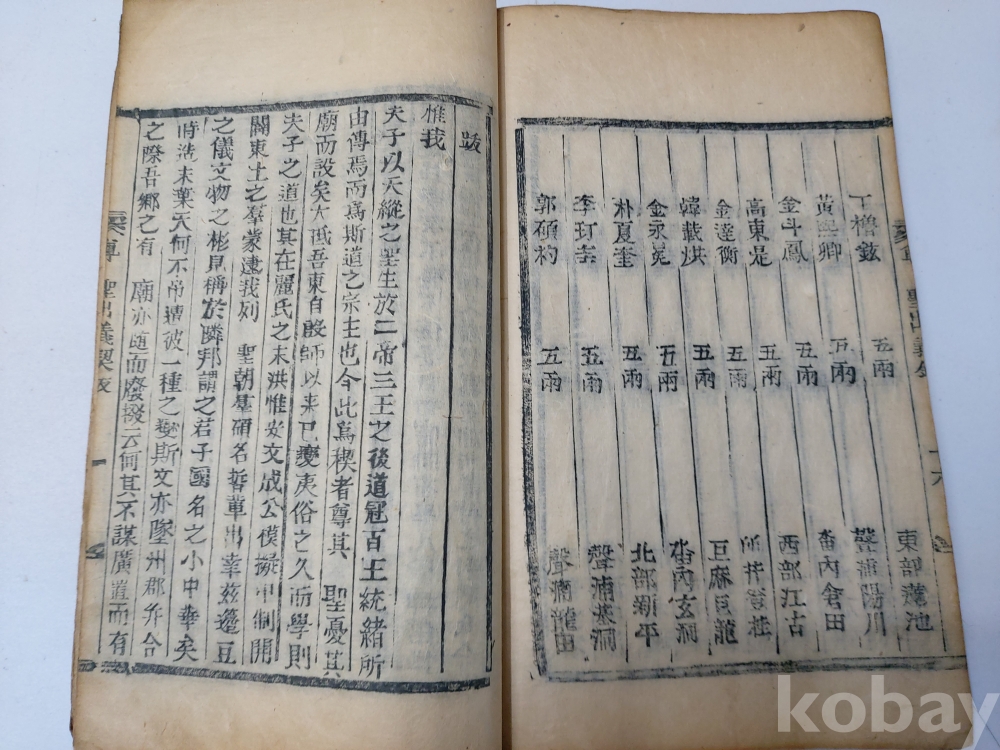 丁櫓鉉 五兩 東部蓮池
黃 卿 五兩 聲浦陽川
金斗鳳 五兩 畓內會田
高東是 五兩 西部江古
金達衡 五兩
韓載洪 五兩 巨麻長龍
金永冕 五兩 畓內玄洞
朴夏奎 五兩 北部新平
李玎 五兩 聲浦茶洞
郭碩杓 五兩 聲浦龍田
跋
惟我
夫子以天縱之聖生於二帝三王之後道冠百王統緒所
由傳焉而爲斯道之宗主也今此爲稧者尊其 聖憂其
廟而設矣大抵吾東自殷師以來已變夷俗之久而學則
夫子之道也其在麗氏之末洪惟安文成公模擬中制開
闢東土之羣蒙逮我列 聖朝羣碩名哲輩出幸玆籩豆
之儀文物之彬見稱於隣邦謂之君子國名之小中華矣
時 末葉天何不吊遭彼一種之變斯文亦墜州郡弁合
之際吾鄉之有 廟亦随而廢撥云何其不謀廣道而有
聖 義契跋 一
kobay